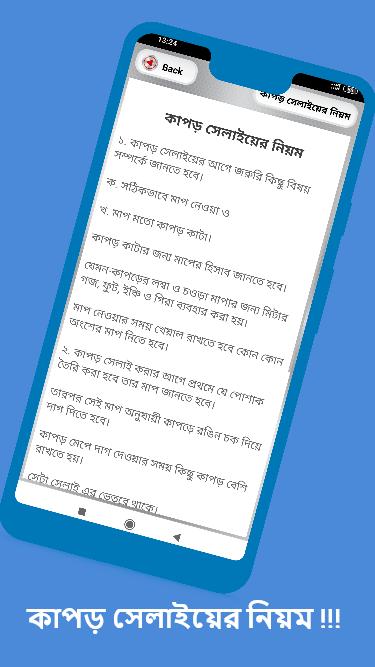 13:24
Back
কাপড় সেলাইয়ের নিয়ম
কাপড় সেলাইয়ের নিয়ম
১. কাপড় সেলাইয়ের আগে জরুরি কিছু বিষয়
সম্পর্কে জানতে হবে।
ক. সঠিকভাবে মাপ নেওয়া ও
খ. মাপ মতো কাপড় কাটা।
কাপড় কাটার জন্য মাপের হিসাব জানতে হবে।
যেমন-কাপড়ের লম্বা ও চওড়া মাপার জন্য মিটার
গজ, ফুট, ইঞ্চি ও গিরা ব্যবহার করা হয়।
মাপ নেওয়ার সময় খেয়াল রাখতে হবে কোন কোন
অংশের মাপ নিতে হবে।
২. কাপড় সেলাই করার আগে প্রথমে যে পোশাক
তৈরি করা হবে তার মাপ জানতে হবে।
তারপর সেই মাপ অনুযায়ী কাপড়ে রঙিন চক দিয়ে
দাগ দিতে হবে।
কাপড় মেপে দাগ দেওয়ার সময় কিছু কাপড় বেশি
রাখতে হয়।
সেটা সেলাই এর ভেতরে থাকে।
কাপড় সেলাইয়ের নিয়ম !!!